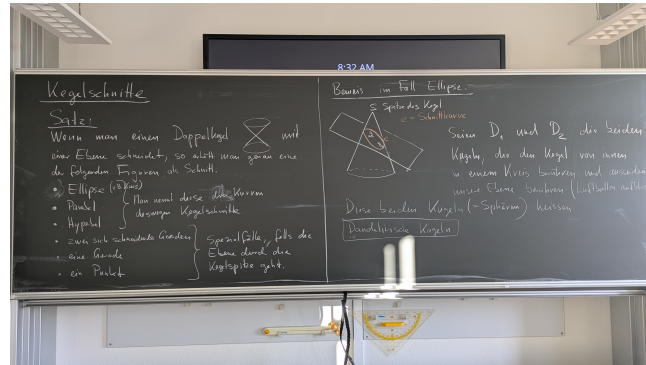 8:32 AM
Kegelschnitte
Satz:
Wenn man einen Doppelkegel mit
einer Ebene schneidet, so erhält man genau eine
der folgenden Figuren als Schnitt.
• Ellipse (z.B. Kreis)
• Parabel
• Hyperbel
Man nennt diese Kurven
deswegen Kegelschnitte
• zwei sich schneidende Geraden
• eine Gerade
• ein Punkt
Spezialfälle, falls die
Ebene durch die
Kegelspitze geht.
Beweis im Fall Ellipse.
S Spitze des Kegel
e = Schnittkurve
Seien D₁ und D₂ die beiden
Kugeln, die den Kegel von innen
in einem Kreis berühren und ausserdem
unsere Ebene berühren (Luftballon
Diese beiden Kugeln (=Sphären) heissen
Dandelinsche Kugeln